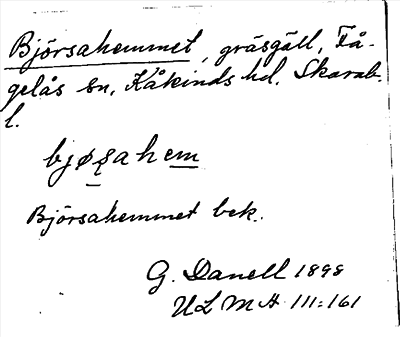 Björsahemmet, gräsgäll, Få-
gelås sn, Kåkinds hd. Skarab.
l.
bjøsahem
Björsahemmet bek.
G. Danell 1898
ULMA 111:161